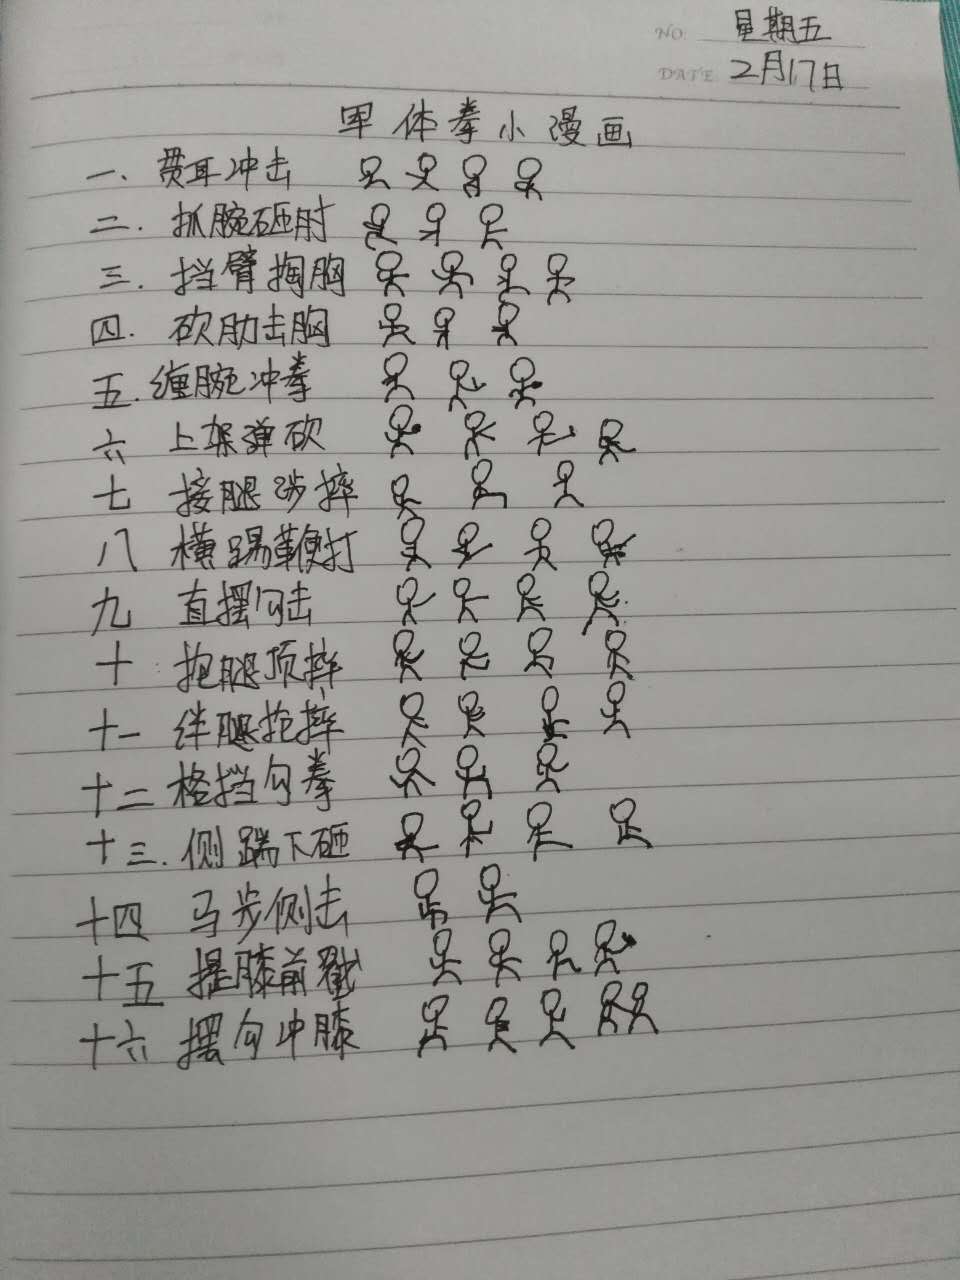 NO 星期五
DATE 2月17日
军体拳小漫画
一、贯耳冲击
二.抓腕砸肘
三.挡臂掏胸
四.砍肋击胸
五.缠腕冲拳
六 上架弹砍
七 接腿涉摔
八 横踢鞭打
九 直摆勾击
十 抱腿顶摔
十一 绊腿抢摔
十二 格挡勾拳
十三.侧踹下砸
十四 马步侧击
十五 提膝前戳
十六 摆勾冲膝